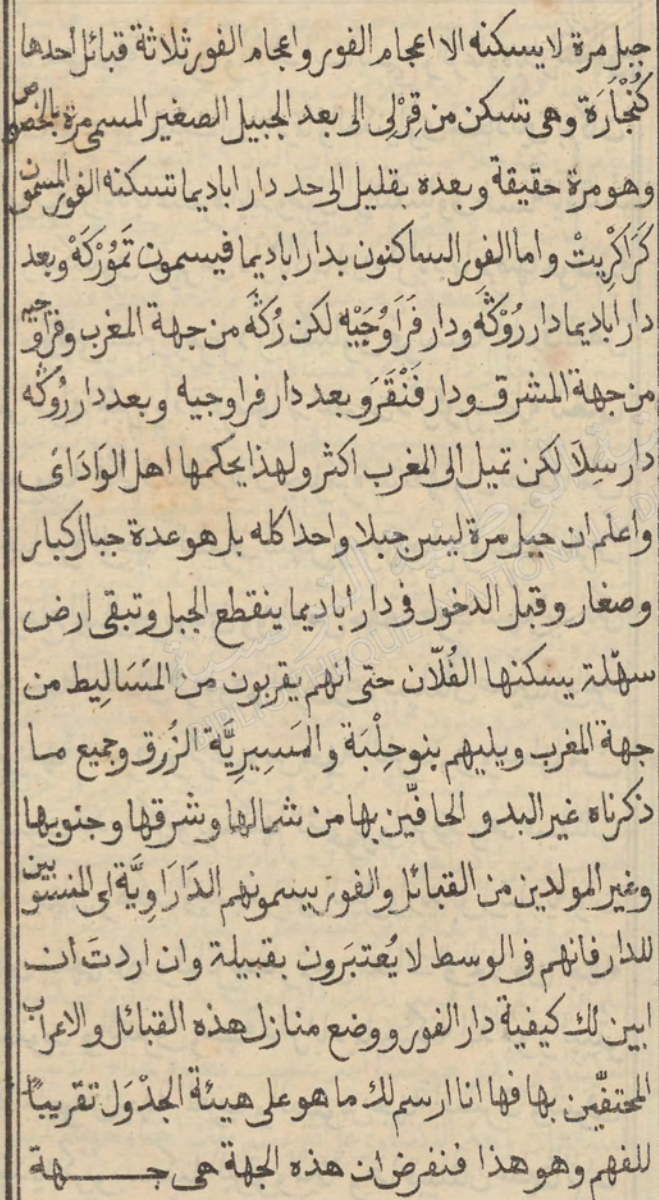 جبل مرة لا يسكنه الا اعجام الفور واعجام الفور ثلاثة قبائل أحدها
كُنْجَارَة وهى تسكن من قِرْلِى الى بعد الجبيل الصغير المسمى مرة بالخصوص
وهو مرة حقيقة وبعده بقليل الى حد دار اباديما تسكنه الفور المسمون
كَرَاكْرِيتْ واما الفور الساكنون بدار اباديما فيسمون تَمُوُرْكَهْ وبعد
دار اباديما دار رُوْنْكَه ودار فَرَاوُجَيْه لكن رُكَه من جهة المغرب وفراوجيه
من جهة المشرق ودار فَنْقَرَو بعد دار فراوجيه وبعد دار رُوُكَه
دار سِلَا لكن تميل الى المغرب اكثر ولهذا يحكمها اهل الوَادَاى
واعلم ان جبل مرة ليس جبلا واحدا كله بل هو عدة جبال كبار
وصغار وقبل الدخول فى دار اباديما ينقطع الجبل وتبقى ارض
سهلة يسكنها الفُلّان حتى انهم يقربون من المَسَالِيط من
جهة المغرب ويليهم بنو حِلْبَة والمَسِيرِيَّة الزُرق وجميع ما
ذكرناه غير البدو الحافّين بها من شمالها وشرقها وجنوبها
وغير المولدين من القبائل والفور يسمونهم الدَارَاوِيَّة اى المنسوبين
للدار فانهم فى الوسط لا يُعتبَرون بقبيلة وان اردتَ ان
ابين لك كيفية دار الفور ووضع منازل هذه القبائل والاعراب
المحتفّين بها فها انا ارسم لك ما هو على هيئة الجدْوَل تقريبًا
للفهم وهو هذا فنفرض ان هذه الجهة هى جهة